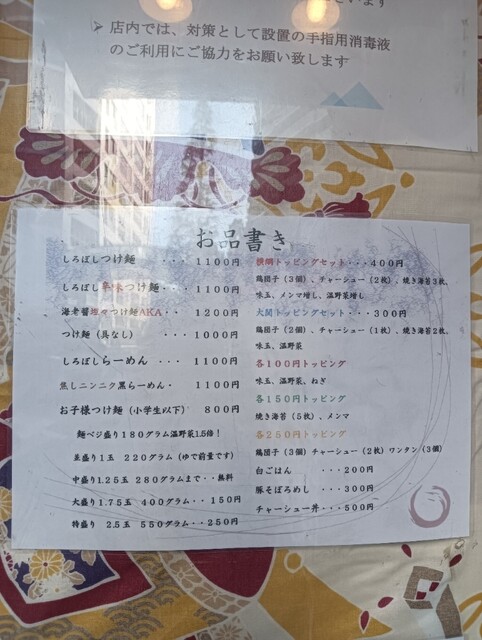 います
➢ 店内では、対策として設置の手指用消毒液
のご利用にご協力をお願い致します
お品書き
しろぼしつけ麺 ・・・ 1100円
しろぼし辛味つけ麺・・・ 1100円
海老醤坦々つけ麺AKA・・ 1200円
つけ麺（具なし） ・・・ 1000円
しろぼしらーめん ・・ 1100円
焦しニンニク黒らーめん・ 1100円
お子様つけ麺（小学生以下） 800円
麺ベジ盛り180グラム温野菜1.5倍！
並盛り1玉 220グラム（ゆで前量です）
中盛り1.25玉 280グラムまで・・無料
大盛り1.75玉 400グラム・・150円
特盛り 2.5玉 550グラム・・250円
横綱トッピングセット・・・400円
鶏団子（3個）、チャーシュー（2枚）、焼き海苔3枚、
味玉、メンマ増し、温野菜増し
大関トッピングセット・・・300円
鶏団子（2個）、チャーシュー（1枚）、焼き海苔2枚、
味玉、温野菜
各100円トッピング
味玉、温野菜、ねぎ
各150円トッピング
焼き海苔（5枚）、メンマ
各250円トッピング
鶏団子（3個）チャーシュー（2枚）ワンタン（3個）
白ごはん ・・・200円
豚そぼろめし ・・・300円
チャーシュー丼・・・500円